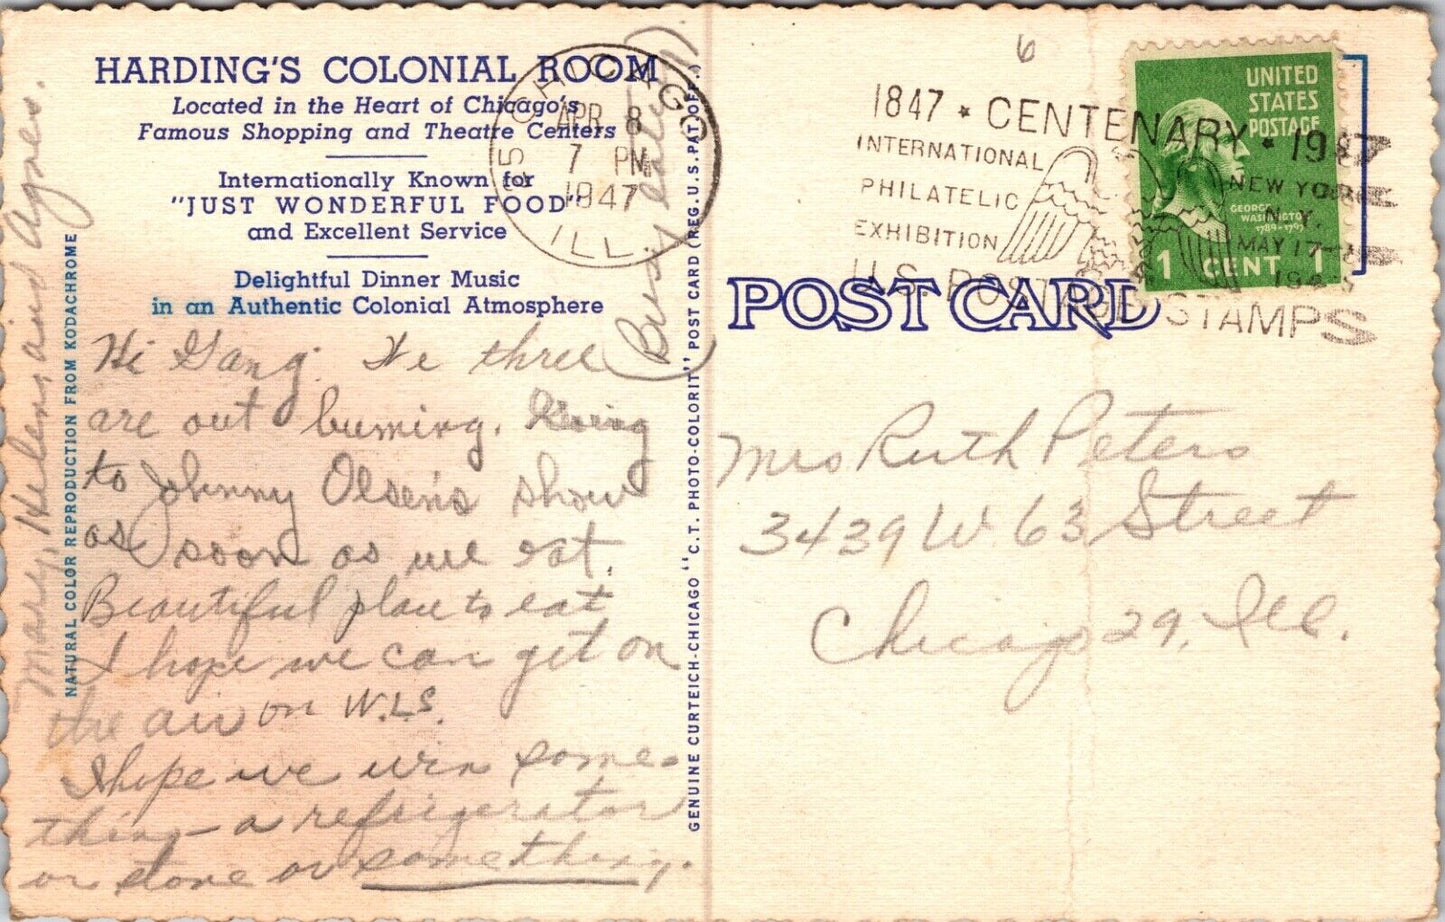 HARDING'S COLONIAL ROOM
Located in the Heart of Chicago's
Famous Shopping and Theatre Centers
Internationally Known for
"JUST WONDERFUL FOOD"
and Excellent Service
Delightful Dinner Music
in an Authentic Colonial Atmosphere
Hi Gang. We three
are out buming. Going
to Johnny Olsen's show
as soon as we eat.
Beautiful place to eat
I hope we can get on
the air on W.L.S.
I hope we win some-
thing - a refrigerator
or stove or something.
Mary, Helen, and Agnes.
(Busy eating).
NATURAL COLOR REPRODUCTION FROM KODACHROME
GENUINE CURTEICH-CHICAGO "C.T. PHOTO-COLORIT" POST CARD (REG. U.S. PAT. OFF.)
CHICAGO
55
APR 8
7 PM
1947
ILL
6
1847 * CENTENARY * 1947
INTERNATIONAL
PHILATELIC
EXHIBITION
U.S. POSTAGE STAMPS
NEW YORK
N.Y.
MAY 17-25
1947
UNITED
STATES
POSTAGE
GEORGE
WASHINGTON
1789-1797
1 CENT 1
POST CARD
Mrs Ruth Peters
3439 W 63 Street
Chicago 29, Ill.